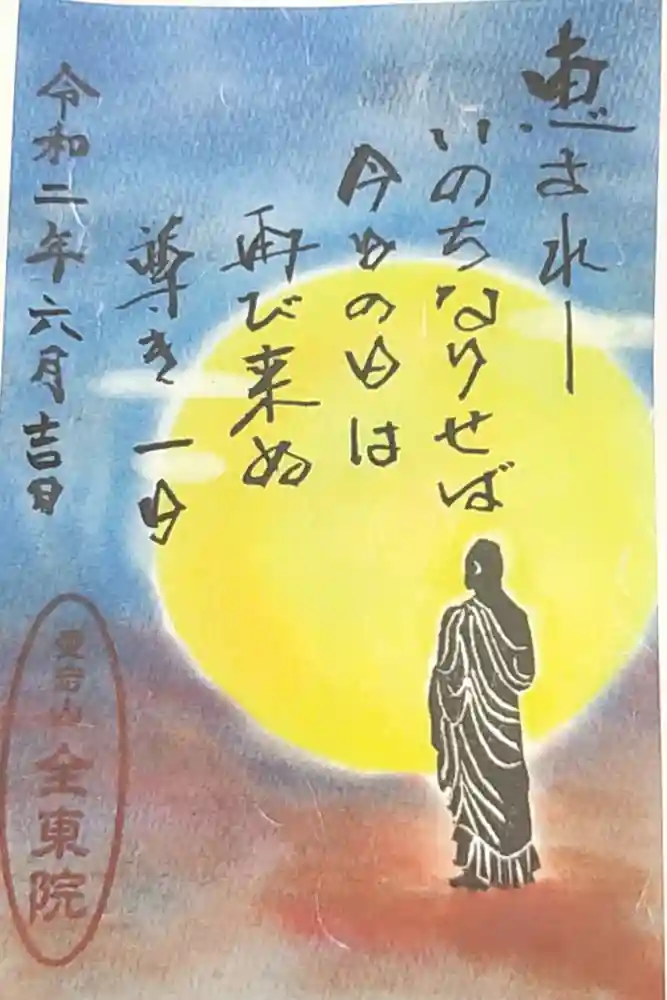 恵まれし
いのちなりせば
今日の日は
再び来ぬ
尊き一日
令和二年六月吉日
全東院